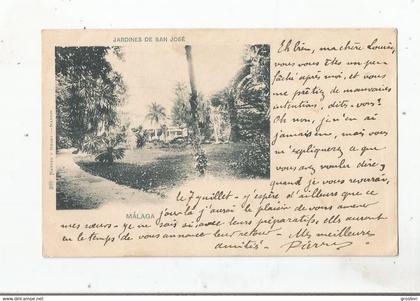 JARDINES DE SAN JOSÉ
Eh bien, ma chère Louise,
vous vous êtes un peu
fâché après moi, et vous
me prêtez de mauvaises
intentions, dites-vous?
Oh non, je n'en ai
jamais eu, mais vous
m'expliquerez ce que
vous avez voulu dire,
quand je vous reverrai,
MÁLAGA
le 7 juillet - j'espère d'ailleurs que ce
jour-là j'aurai le plaisir de vous amener
mes sœurs - je ne sais où avec leurs préparatifs, elles auront
eu le temps de vous annoncer leur retour - Mes meilleures
amitiés - Pierre